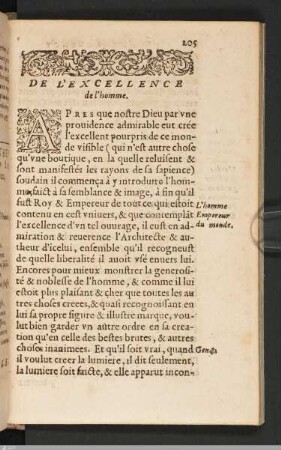 205
DE L'EXCELLENCE
de l'homme.
APRES que nostre Dieu par vne
prouidence admirable eut crée
l'excellent pourpris de ce mon-
de visible ( qui n'est autre chose
qu'vne boutique, en la quelle reluisent &
sont manifestés les rayons de sa sapience)
soudain il commença à y introdure l'hom-
me, faict à sa semblance & image, à fin qu'il
fust Roy & Empereur de tout ce qui estoit
contenu en cest vniuers, & que contemplãt
l'excellence d'vn tel ouurage, il eust en ad-
miration & reuerence l'Architecte & au-
theur d'icelui, ensemble qu'il recogneust
de quelle liberalité il auoit vsé enuers lui.
Encores pour mieux monstrer la generosi-
té & noblesse de l'homme, & comme il lui
estoit plus plaisant & cher que toutes les au
tres choses creées, & quasi recognoissant en
lui sa propre figure & illustre marque, vou-
lut bien garder vn autre ordre en sa crea-
tion qu'en celle des bestes brutes, & autres
choses inanimees. Et qu'il soit vrai, quand
il voulut creer la lumiere, il dit seulement,
la lumiere soit faicte, & elle apparut incon-
L'homme
Empereur
du monde.